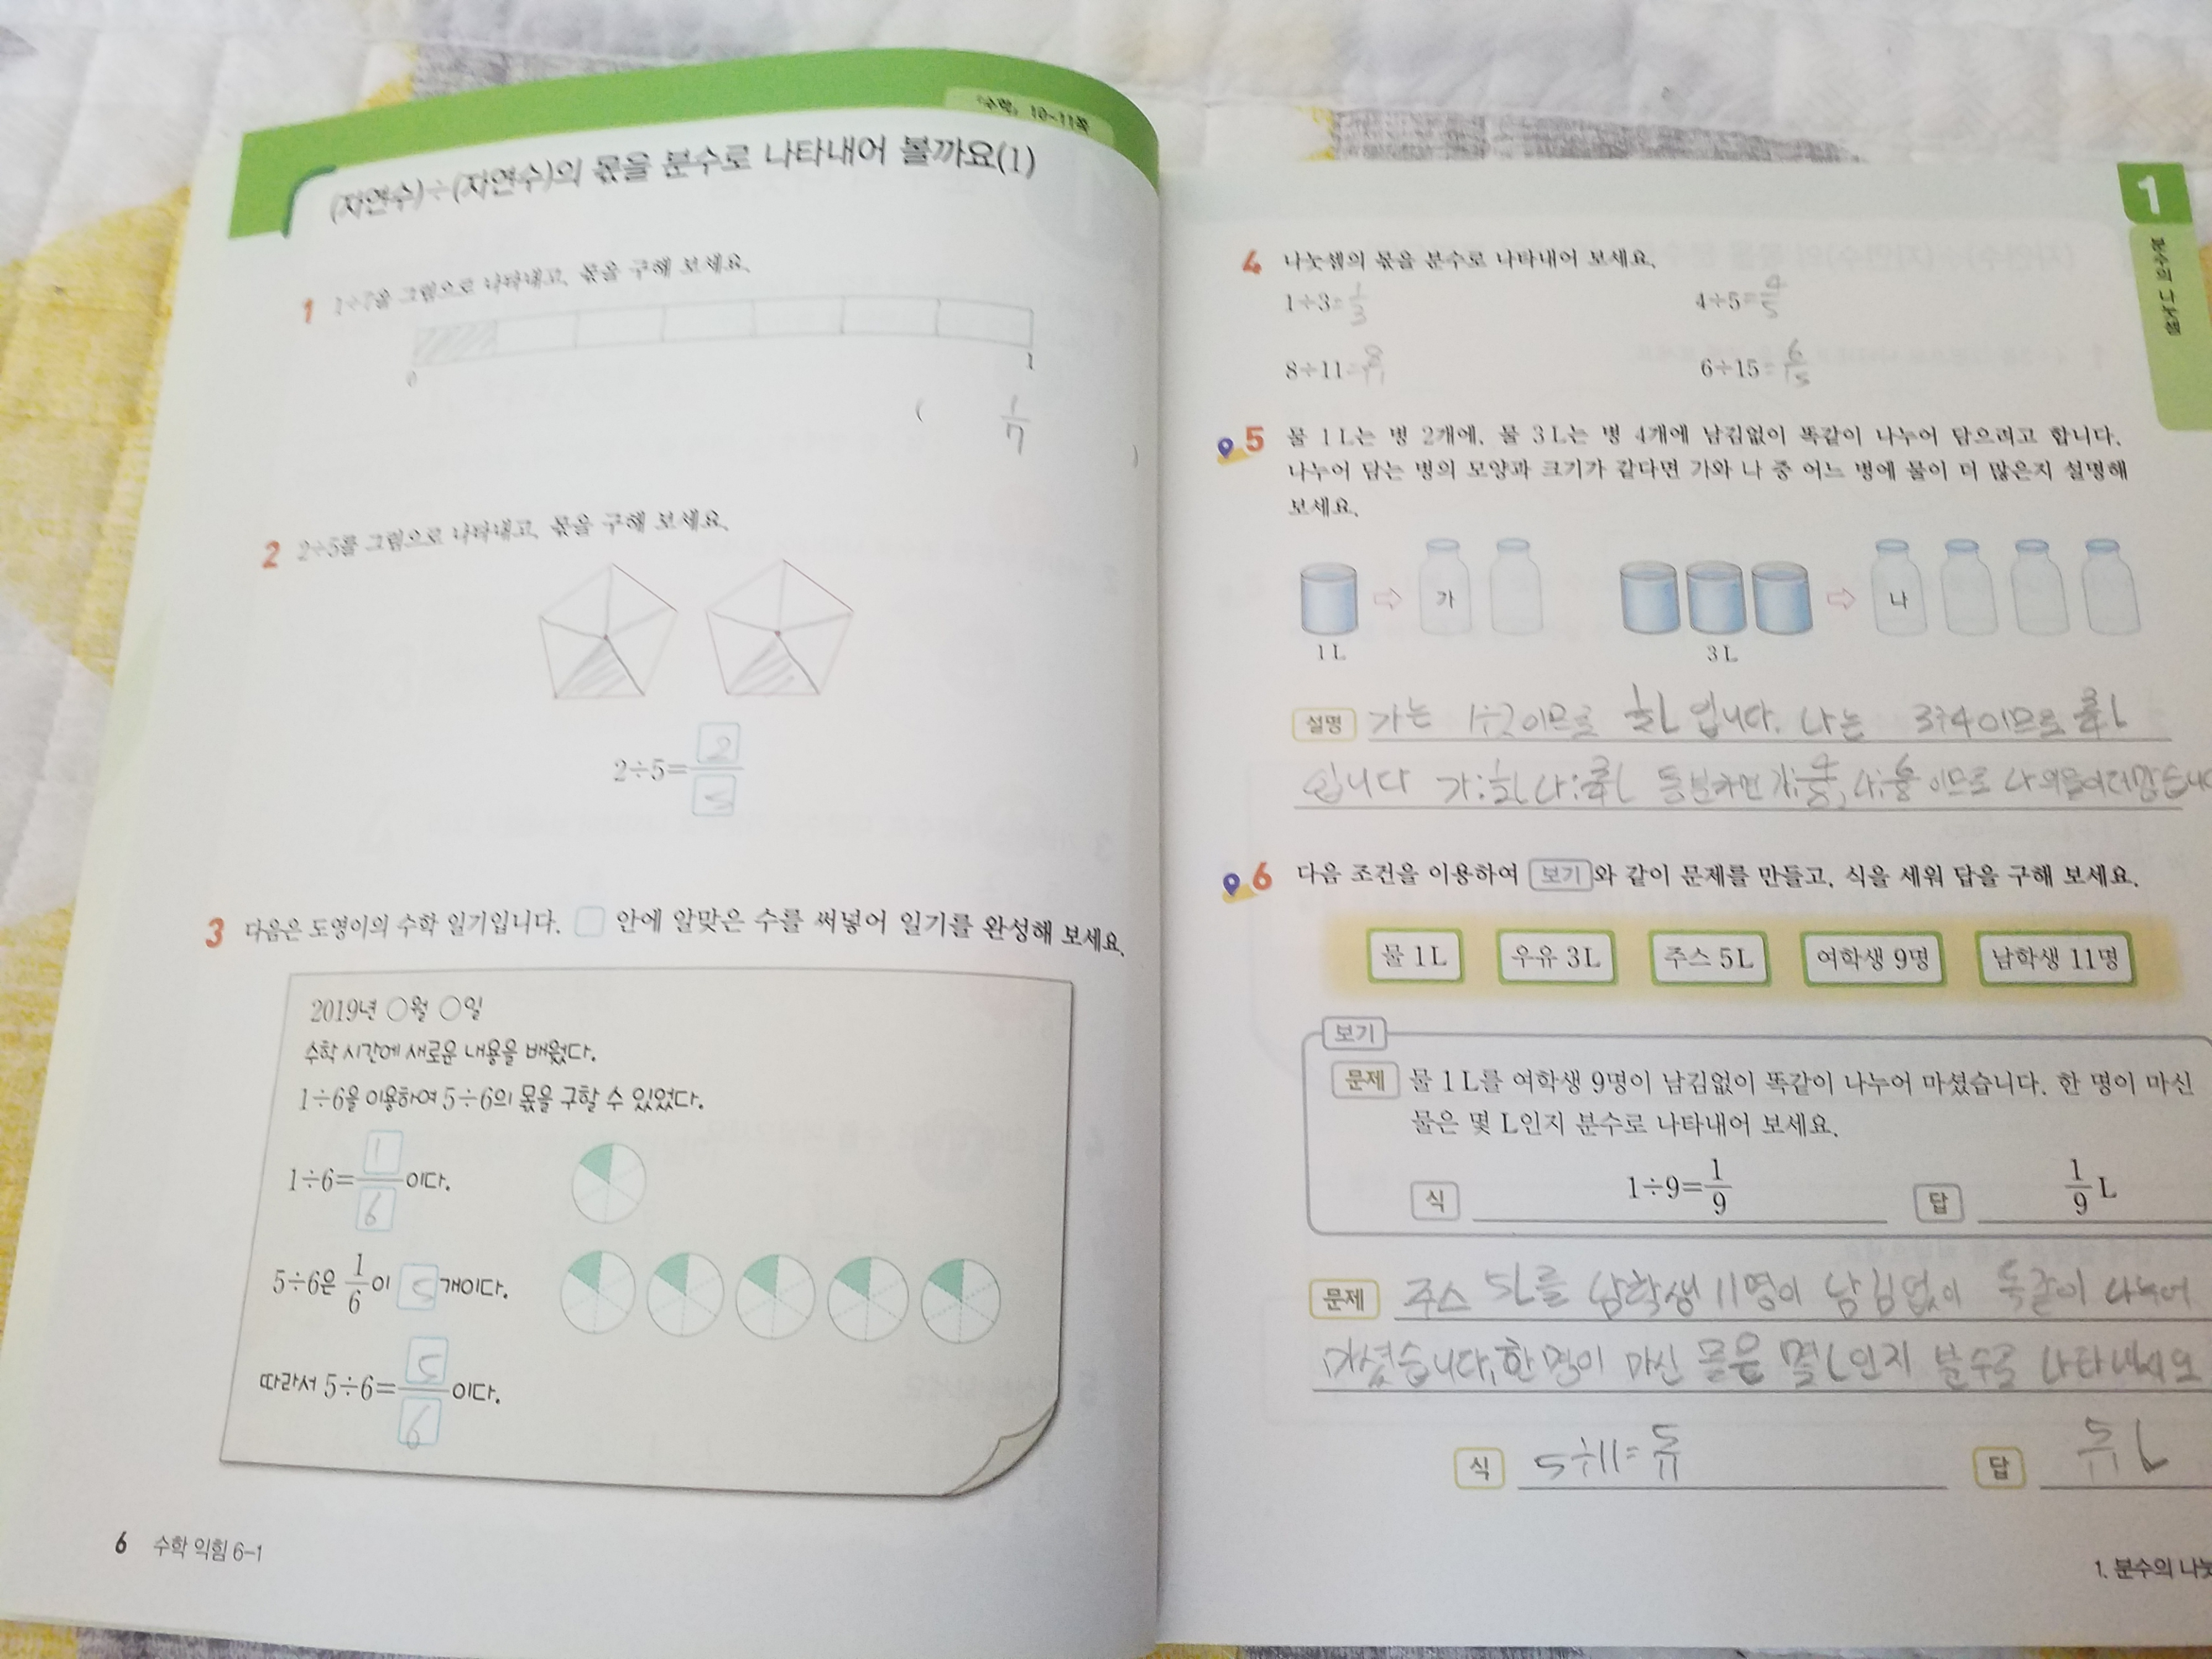 『수학』 10~11쪽
(자연수)÷(자연수)의 몫을 분수로 나타내어 볼까요(1)
1 1÷7을 그림으로 나타내고, 몫을 구해 보세요.
0 1
( 1/7 )
2 2÷5를 그림으로 나타내고, 몫을 구해 보세요.
2÷5=2/5
3 다음은 도영이의 수학 일기입니다. □ 안에 알맞은 수를 써넣어 일기를 완성해 보세요.
2019년 ○월 ○일
수학 시간에 새로운 내용을 배웠다.
1÷6을 이용하여 5÷6의 몫을 구할 수 있었다.
1÷6=1/6이다.
5÷6은 1/6이 5개이다.
따라서 5÷6=5/6이다.
6 수학 익힘 6-1
1
분수의 나눗셈
4 나눗셈의 몫을 분수로 나타내어 보세요.
1÷3=1/3 4÷5=4/5
8÷11=8/11 6÷15=6/15
5 물 1 L는 병 2개에, 물 3 L는 병 4개에 남김없이 똑같이 나누어 담으려고 합니다.
나누어 담는 병의 모양과 크기가 같다면 가와 나 중 어느 병에 물이 더 많은지 설명해
보세요.
가 나
1 L 3 L
설명 가는 1÷2이므로 1/2L 입니다. 나는 3÷4이므로 3/4L
입니다 가:1/2L 나:3/4L 통분하면 가:4/8, 나:6/8 이므로 나의
6 다음 조건을 이용하여 보기와 같이 문제를 만들고, 식을 세워 답을 구해 보세요.
물 1L 우유 3L 주스 5L 여학생 9명 남학생 11명
보기
문제 물 1 L를 여학생 9명이 남김없이 똑같이 나누어 마셨습니다. 한 명이 마신
물은 몇 L인지 분수로 나타내어 보세요.
식 1÷9=1/9 답 1/9 L
문제 주스 5L를 남학생 11명이 남김없이 똑같이 나누어
마셨습니다, 한 명이 마신 물은 몇 L인지 분수로 나타내세요
식 5÷11=5/11 답 5/11 L
1. 분수의 나눗